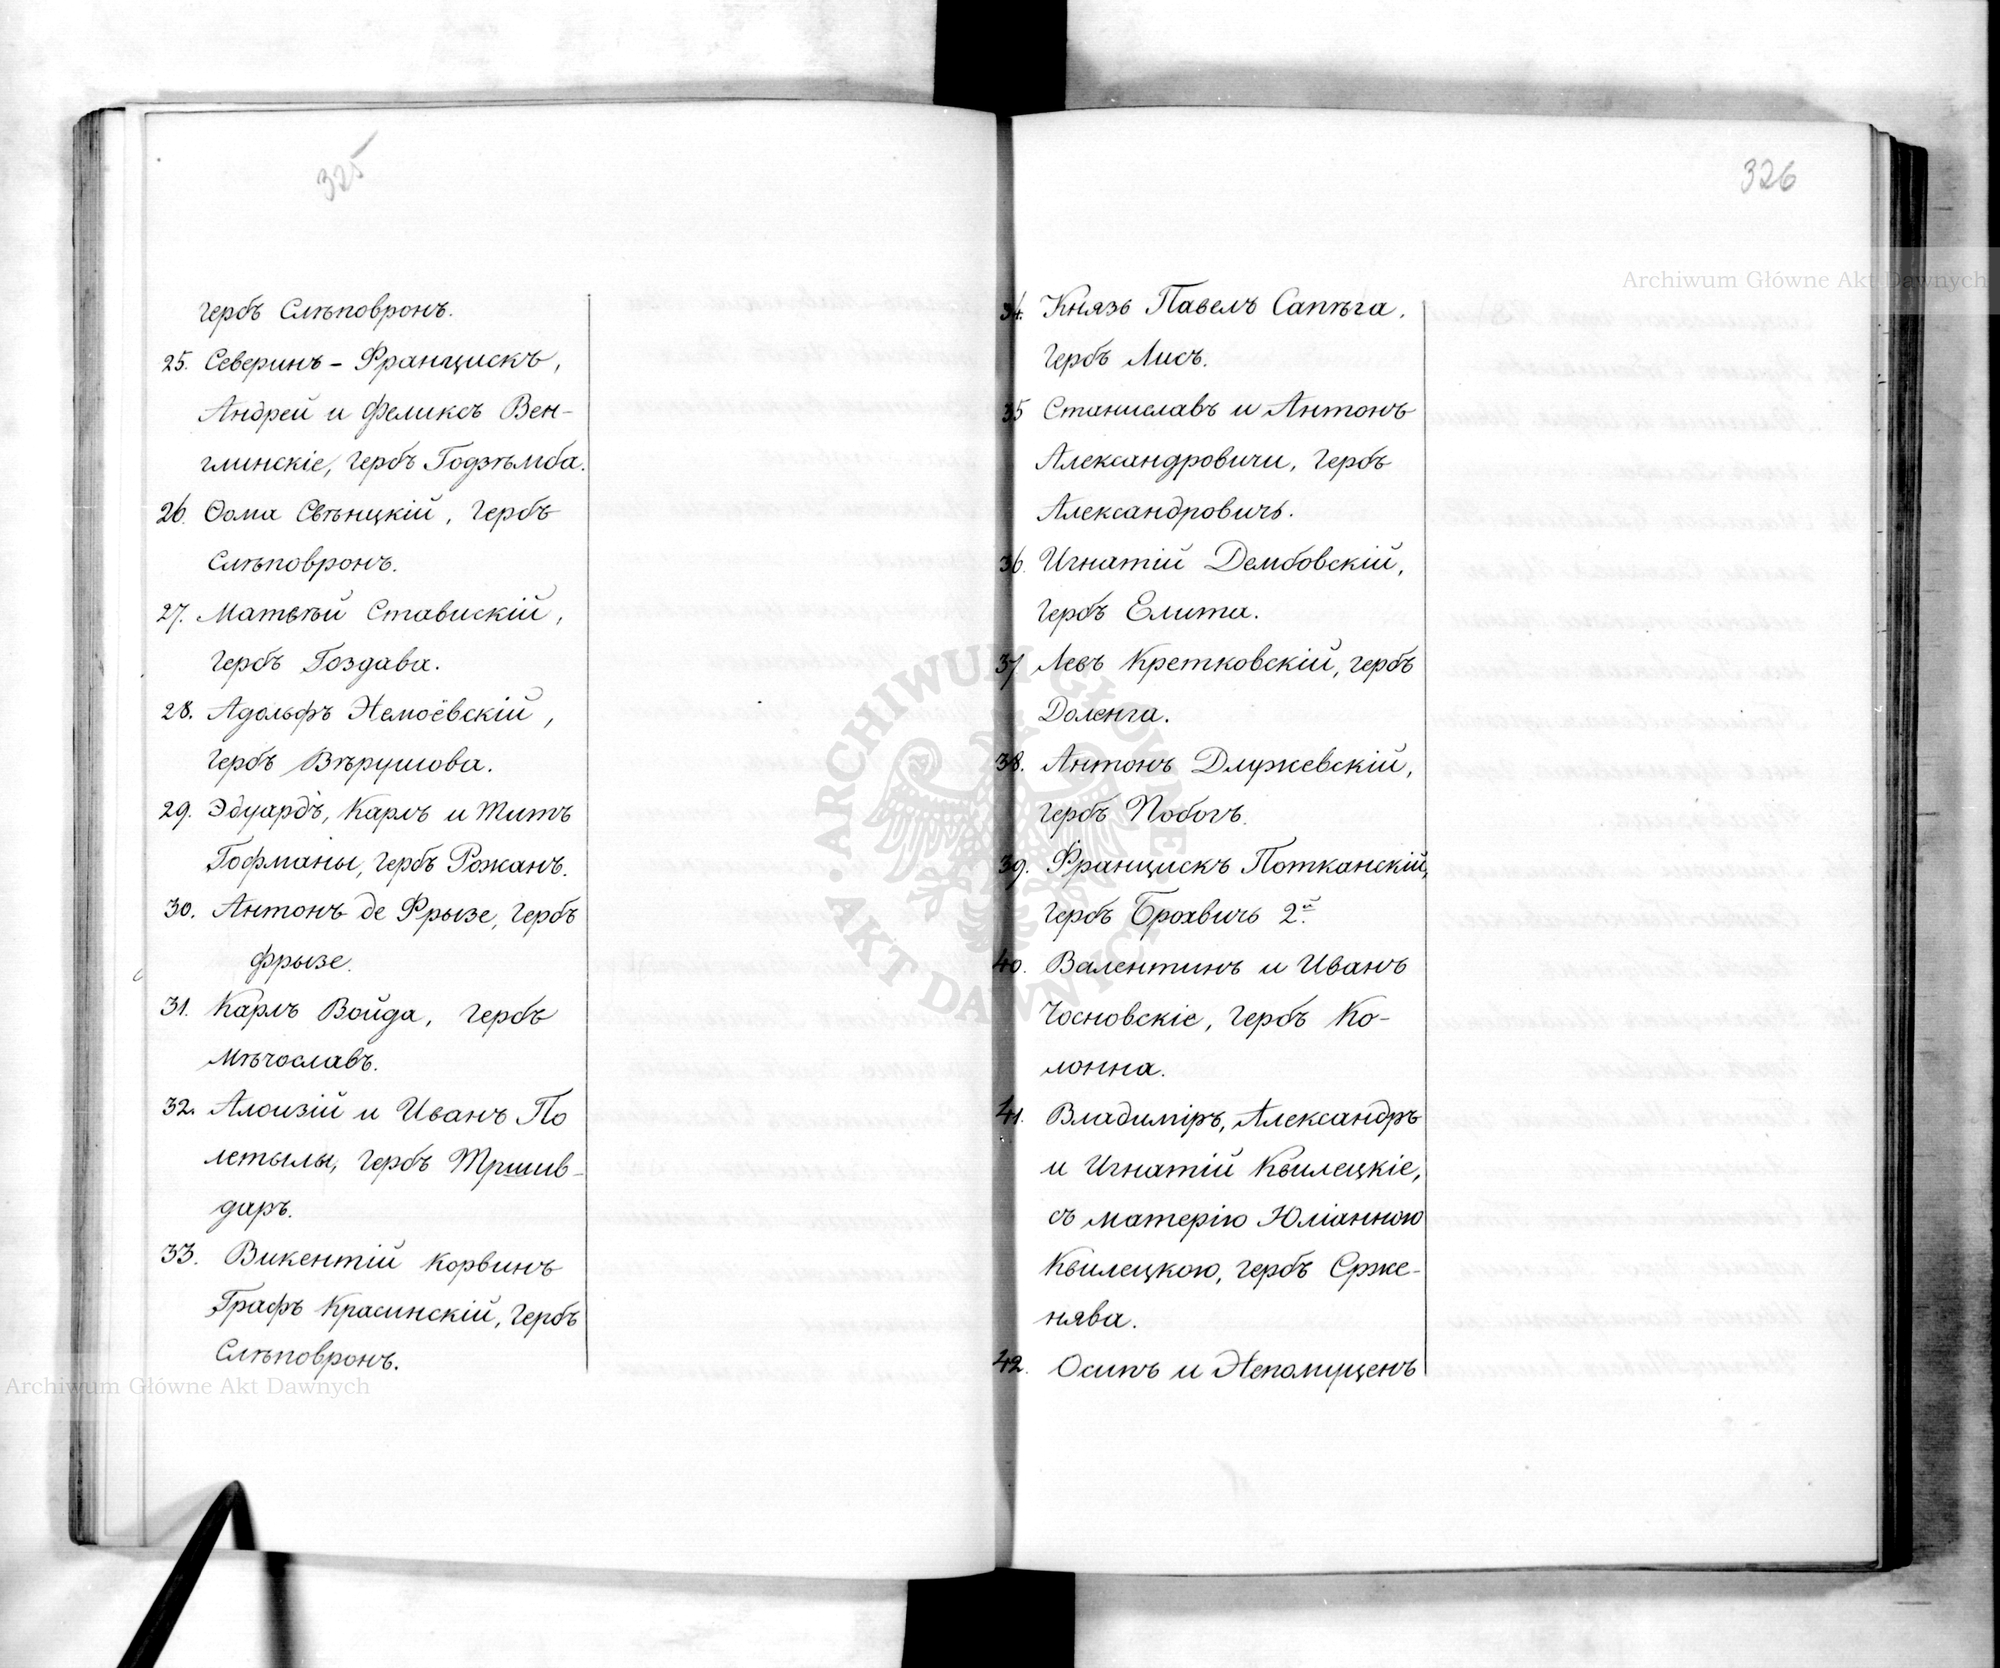 325
гербъ Слѣповронъ.
25. Северинъ - Францискъ,
Андрей и Феликсъ Вен-
глинскіе, гербъ Годзѣмба.
26. Ѳома Свѣнцкій, гербъ
Слѣповронъ.
27. Матвѣй Ставискій,
гербъ Гоздава.
28. Адольфъ Немоёвскій,
гербъ Вѣрушова.
29. Эдуардъ, Карлъ и Титъ
Гофманы, гербъ Рожанъ.
30. Антонъ де Фрызе, гербъ
Фрызе.
31. Карлъ Войда, гербъ
Мѣчославъ.
32. Алоизій и Иванъ По
летылы, гербъ Тршив-
даръ.
33. Викентій Корвинъ
Графъ Красинскій, гербъ
Слѣповронъ.
326
34. Князь Павелъ Сапѣга,
гербъ Лисъ.
35 Станиславъ и Антонъ
Александровичи, гербъ
Александровичъ.
36. Игнатій Дембовскій,
гербъ Елита.
37 Левъ Кретковскій, гербъ
Доленга.
38. Антонъ Длужевскій,
гербъ Побогъ.
39. Францискъ Потканскій,
гербъ Брохвичъ 2й.
40. Валентинъ и Иванъ
Чосновскіе, гербъ Ко-
лонна.
41. Владиміръ, Александръ
и Игнатій Квилецкіе,
съ матерію Юліанною
Квилецкою, гербъ Срже-
нява.
42. Осипъ и Непомуценъ
Archiwum Główne Akt Dawnych
Archiwum Główne Akt Dawnych
ARCHIWUM GŁÓWNE AKT DAWNYCH